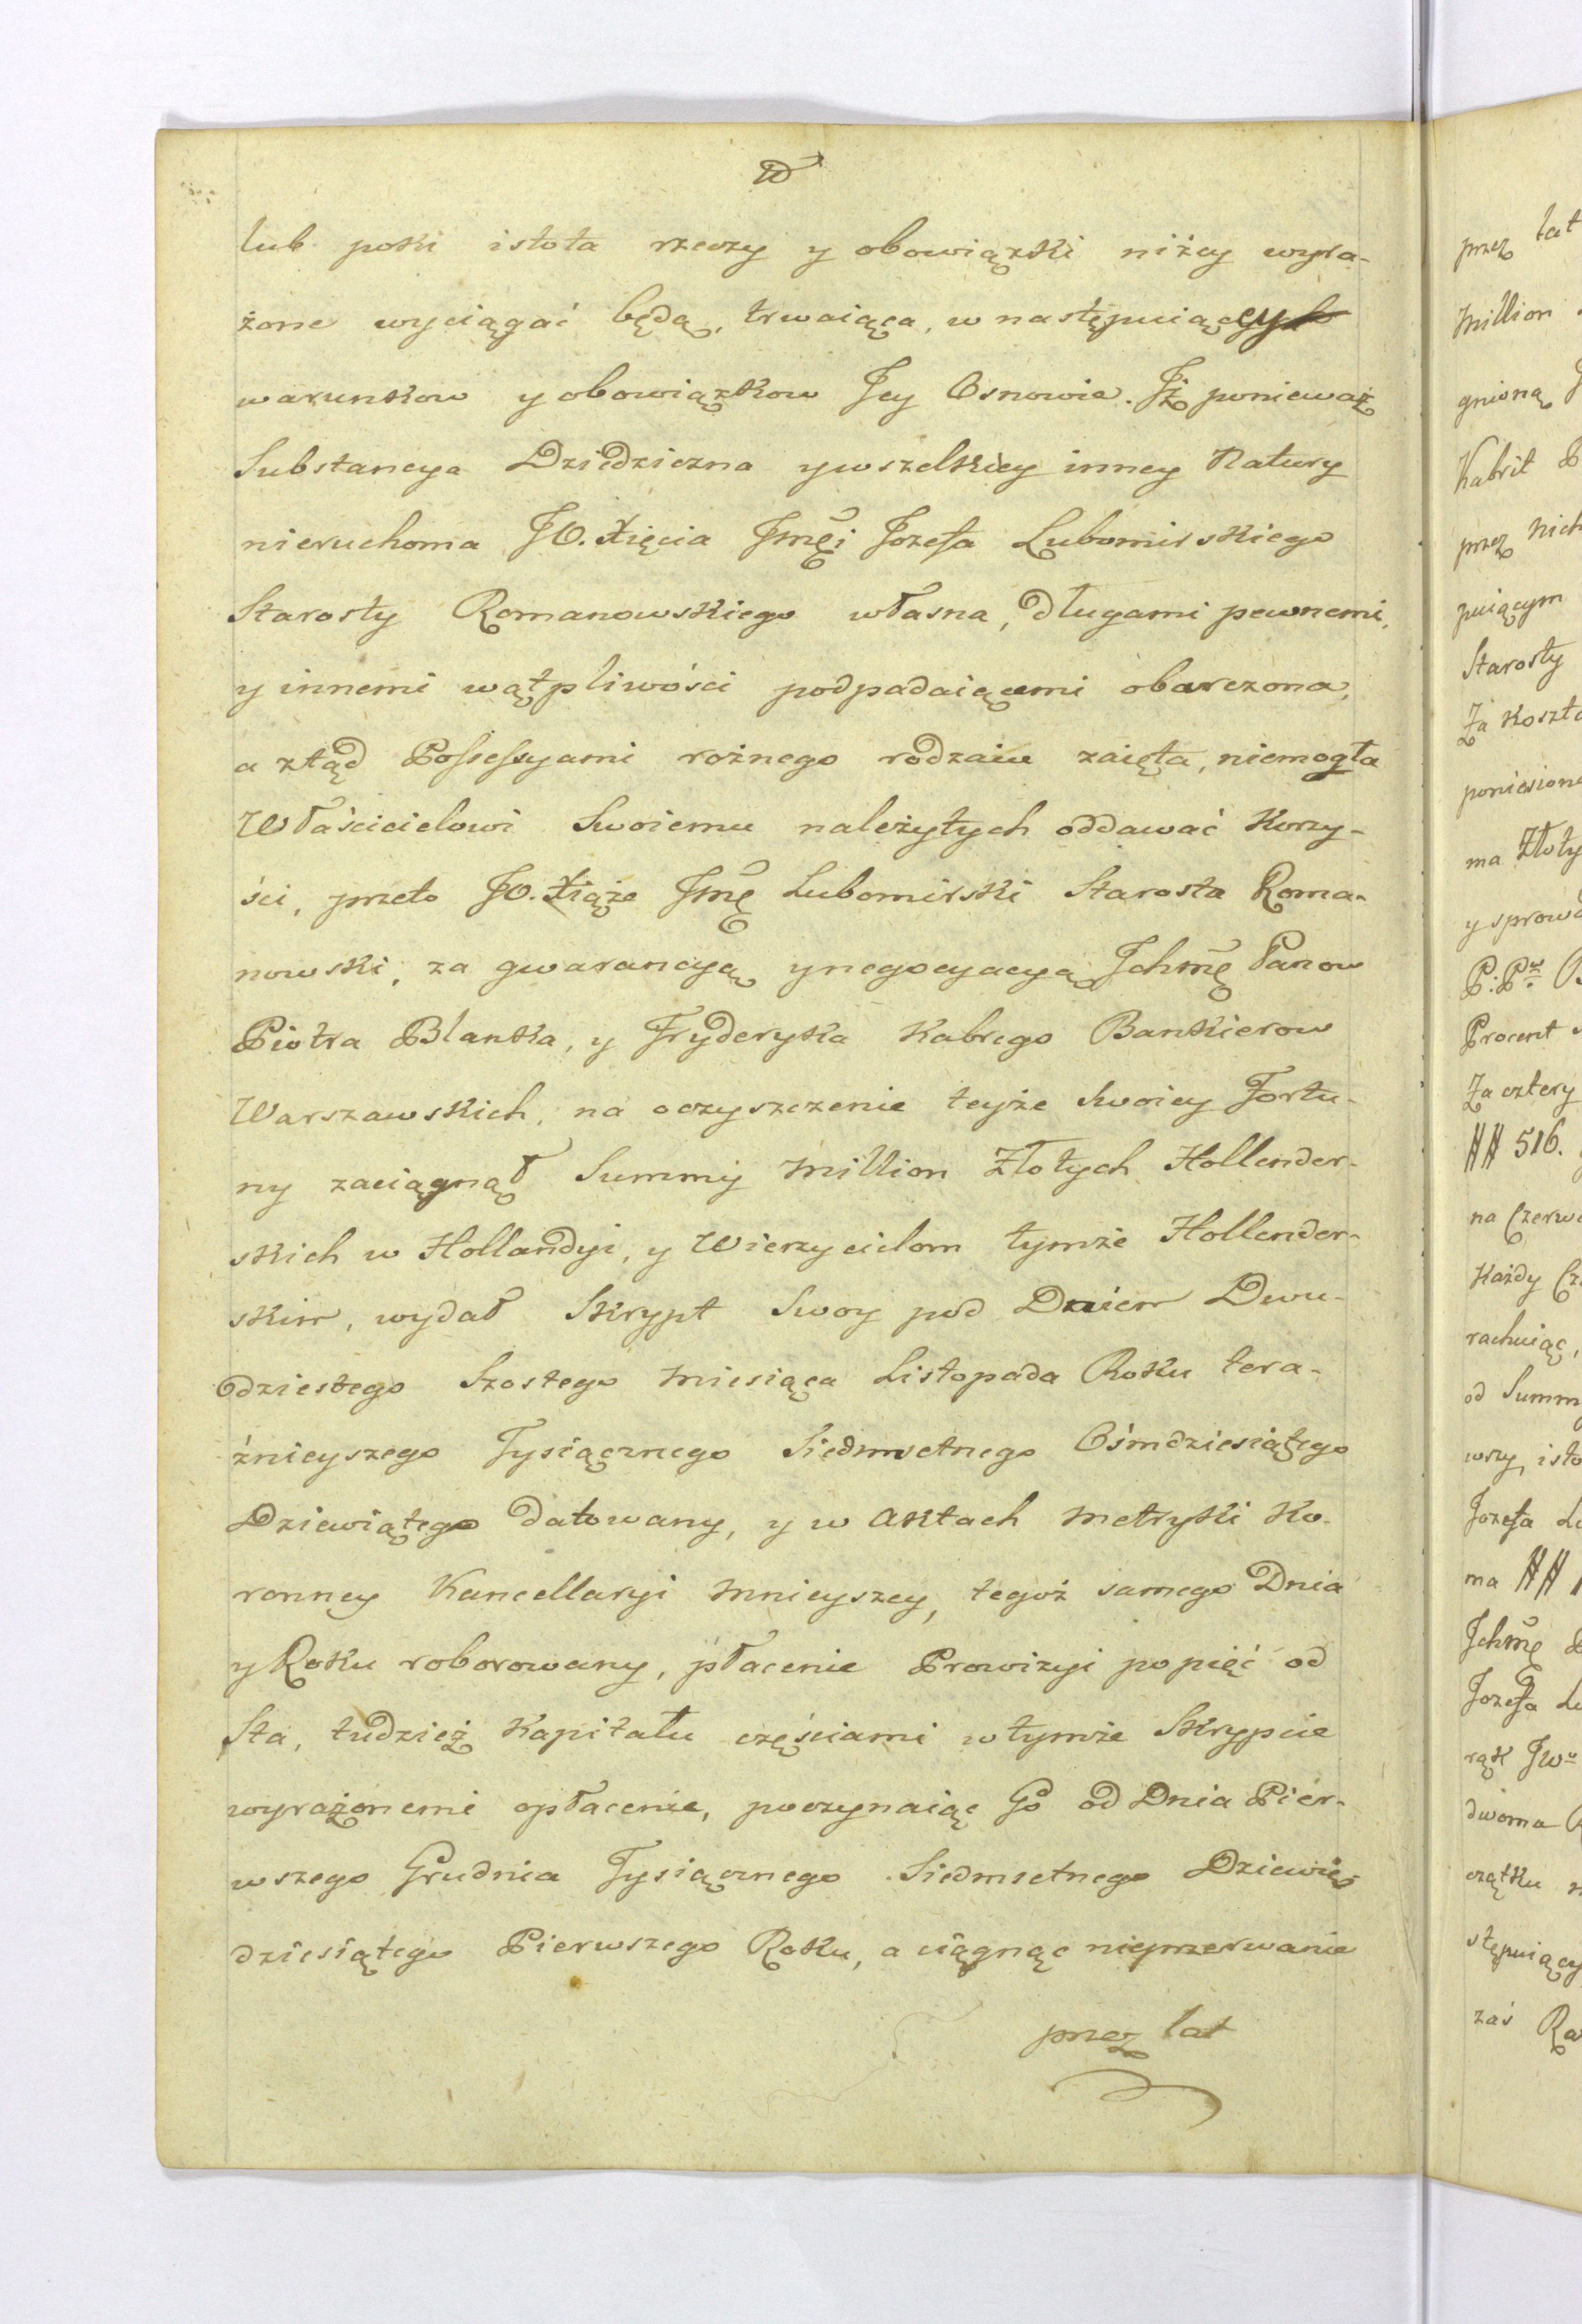 lub poki istota rzeczy y obowiązki niżey wyra-
żone wyciągać będą, trwaiąca, w następuiącey
warunkow y obowiązkow Jey Osnowie. Jż ponieważ
Substancya Dziedziczna y wszelkiey inney Natury
nieruchoma JO. Xięcia Jmći Jozefa Lubomirskiego
Starosty Romanowskiego własna, długami pewnemi,
y innemi wątpliwości podpadaiącemi obarczona,
a ztąd Possessyami rożnego rodzaiu zaięta, niemogła
Właścicielowi Swoiemu należytych oddawać korzy-
ści, przeto JO. Xiąże Jmć Lubomirski Starosta Roma-
nowski, za gwarancyą y negocyacyą Jchmć Panow
Piotra Blanka, y Fryderyka Kabrego Bankierow
Warszawskich, na oczyszczenie teyże Swoiey Fortu-
ny zaciągnął Summy Million Złotych Hollender-
skich w Hollandyi, y Wierzycielom tymże Hollender-
skim, wydał Skrypt Swoy pod Dniem Dwu-
dziestego Szostego Miesiąca Listopada Roku tera-
źnieyszego Tysiącznego Siedmsetnego Ośmdziesiątego
Dziewiątego datowany, y w Aktach Metryki Ko-
ronney Kancellaryi Mnieyszey, tegoż samego Dnia
y Roku roborowany, płacenie Prowizyi po pięć od
Sta, tudzież Kapitału częściami w tymże Skrypcie
wyrażonemi opłacenie, poczynaiąc Go od Dnia Pier-
wszego Grudnia Tysiącznego Siedmsetnego Dziewię-
dziesiątego Pierwszego Roku, a ciągnąc nieprzerwanie
przez lat
przez lat
Million
gnioną
Kabrit
przez nich
puiącym
Starosty
Za koszta
ma Złoty
Procent
Za cztery
## 516.
Każdy
rachuiąc,
od Summ
Jozefa
ma ##
Jchmć
Jozefa
dwoma
zaś